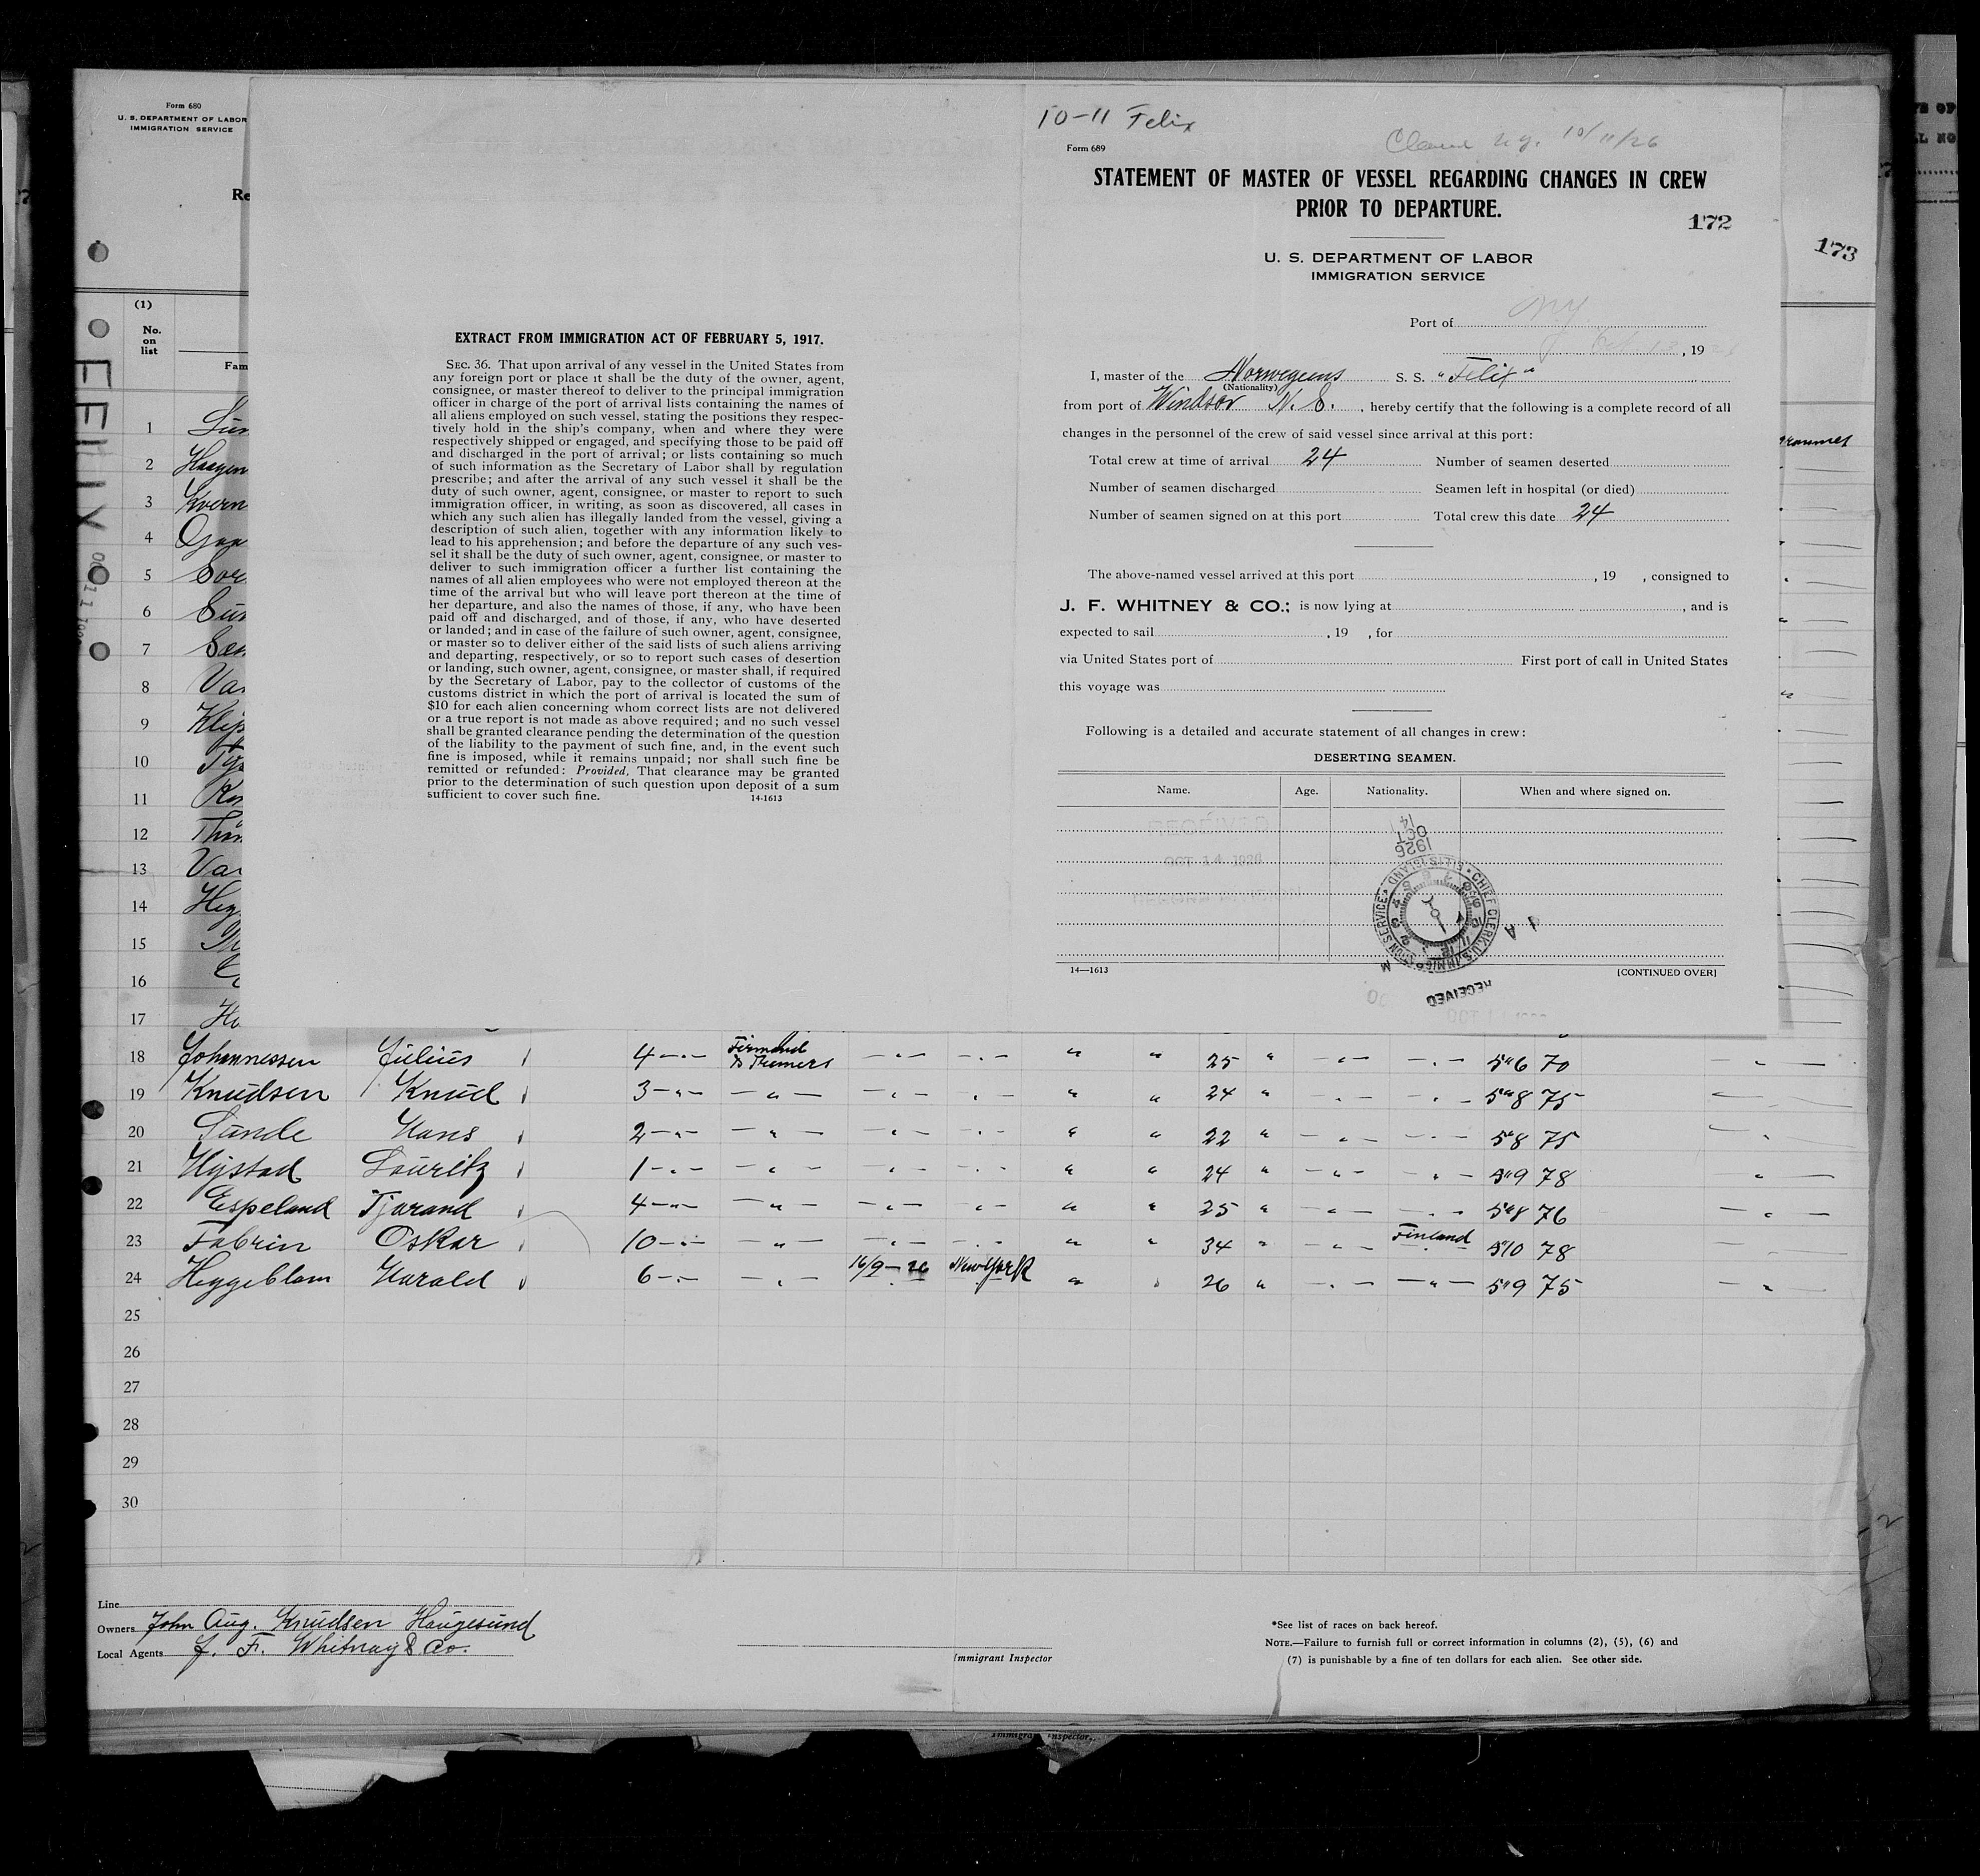 Form 680
U. S. DEPARTMENT OF LABOR
IMMIGRATION SERVICE
Re
(1)
No.
on
list
Fam
FELIX
1 Sun
2 Haagen
3 Kvern
4
5 Sor
6 Sun
7
8 Va
9 Klip
10
11
12
13 Va
14 Heg
15
16
17 Ha
EXTRACT FROM IMMIGRATION ACT OF FEBRUARY 5, 1917.
SEC. 36. That upon arrival of any vessel in the United States from
any foreign port or place it shall be the duty of the owner, agent,
consignee, or master thereof to deliver to the principal immigration
officer in charge of the port of arrival lists containing the names of
all aliens employed on such vessel, stating the positions they respec-
tively hold in the ship's company, when and where they were
respectively shipped or engaged, and specifying those to be paid off
and discharged in the port of arrival; or lists containing so much
of such information as the Secretary of Labor shall by regulation
prescribe; and after the arrival of any such vessel it shall be the
duty of such owner, agent, consignee, or master to report to such
immigration officer, in writing, as soon as discovered, all cases in
which any such alien has illegally landed from the vessel, giving a
description of such alien, together with any information likely to
lead to his apprehension; and before the departure of any such ves-
sel it shall be the duty of such owner, agent, consignee, or master to
deliver to such immigration officer a further list containing the
names of all alien employees who were not employed thereon at the
time of the arrival but who will leave port thereon at the time of
her departure, and also the names of those, if any, who have been
paid off and discharged, and of those, if any, who have deserted
or landed; and in case of the failure of such owner, agent, consignee,
or master so to deliver either of the said lists of such aliens arriving
and departing, respectively, or so to report such cases of desertion
or landing, such owner, agent, consignee, or master shall, if required
by the Secretary of Labor, pay to the collector of customs of the
customs district in which the port of arrival is located the sum of
$10 for each alien concerning whom correct lists are not delivered
or a true report is not made as above required; and no such vessel
shall be granted clearance pending the determination of the question
of the liability to the payment of such fine, and, in the event such
fine is imposed, while it remains unpaid; nor shall such fine be
remitted or refunded: Provided, That clearance may be granted
prior to the determination of such question upon deposit of a sum
sufficient to cover such fine. 14-1613
10-11 Felix
10/11/26
Form 689
STATEMENT OF MASTER OF VESSEL REGARDING CHANGES IN CREW
PRIOR TO DEPARTURE.
172
173
U. S. DEPARTMENT OF LABOR
IMMIGRATION SERVICE
Port of NY
, 19
I, master of the Norwegians S. S. "Felix"
(Nationality)
from port of Windsor N. S. , hereby certify that the following is a complete record of all
changes in the personnel of the crew of said vessel since arrival at this port:
Total crew at time of arrival 24 Number of seamen deserted
Number of seamen discharged Seamen left in hospital (or died)
Number of seamen signed on at this port Total crew this date 24
The above-named vessel arrived at this port , 19 , consigned to
J. F. WHITNEY & CO.; is now lying at , and is
expected to sail , 19 , for
via United States port of First port of call in United States
this voyage was
Following is a detailed and accurate statement of all changes in crew:
DESERTING SEAMEN.
Name. Age. Nationality. When and where signed on.
RECEIVED
OCT 14 1926
OCT 14 1926
CHIEF CLERK, U.S. IMMIGRATION SERVICE ELLIS ISLAND
RECEIVED
14—1613 [CONTINUED OVER]
18 Johannessen Julius 4 -"- Firemand & Trimers -"- -"- " " 25 " -"- -"- 5"6 70 -"-
19 Knudsen Knud 3 -"- -"- -"- -"- " " 24 " -"- -"- 5"8 75
20 Sunde Hans 2 -"- -"- -"- -"- " " 22 " -"- -"- 5"8 75 -"-
21 Lauritz 1 -"- -"- -"- -"- " " 24 " -"- -"- 5"9 78 -"-
22 Espeland Tjarand 4 -"- -"- -"- -"- " " 25 " -"- -"- 5"8 76 -"-
23 Fabrin Oskar 10 -"- -"- -"- -"- " " 34 " -"- Finland 5"10 78 -"-
24 Heggeblam Harald 6 -"- -"- 16/9-26 New York " " 26 " -"- -"- 5"9 75 -"-
25
26
27
28
29
30
Line
Owners John Aug. Knudsen Haugesund
Local Agents J. F. Whitnay & Co.
Immigrant Inspector
*See list of races on back hereof.
NOTE.—Failure to furnish full or correct information in columns (2), (5), (6) and
(7) is punishable by a fine of ten dollars for each alien. See other side.
Immigrant Inspector.